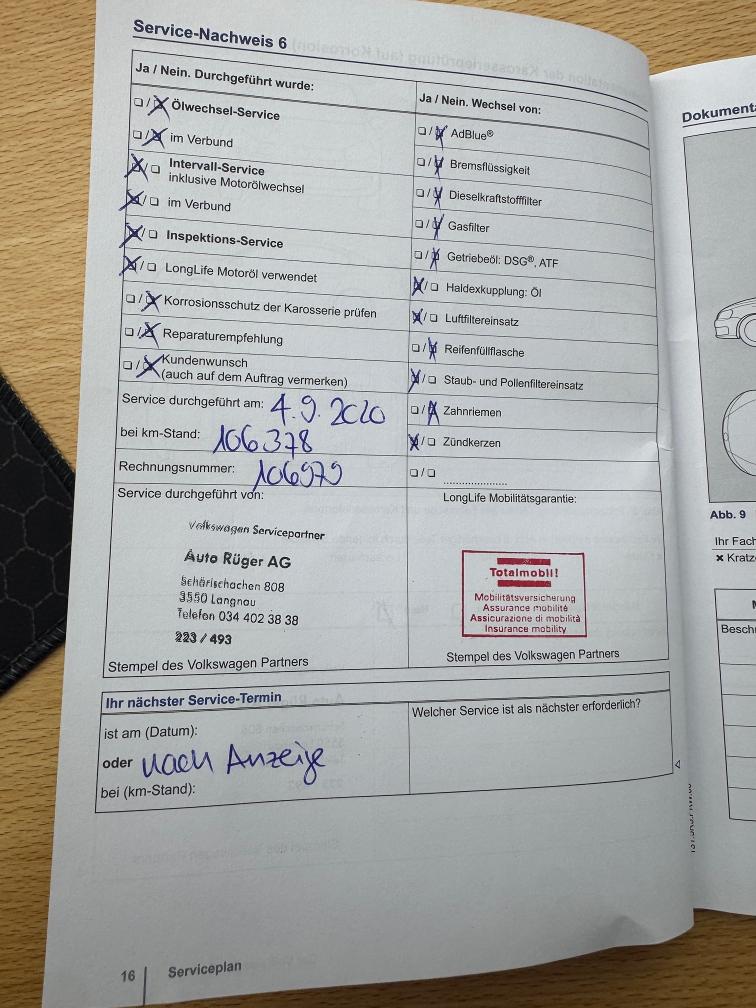 Service-Nachweis 6
Ja / Nein. Durchgeführt wurde:
☐/☒ Ölwechsel-Service
☐/☒ im Verbund
☒/☐ Intervall-Service
inklusive Motorölwechsel
☒/☐ im Verbund
☒/☐ Inspektions-Service
☒/☐ LongLife Motoröl verwendet
☐/☒ Korrosionsschutz der Karosserie prüfen
☐/☒ Reparaturempfehlung
☐/☒ Kundenwunsch
(auch auf dem Auftrag vermerken)
Service durchgeführt am: 4.9.2020
bei km-Stand: 106378
Rechnungsnummer: 106979
Service durchgeführt von:
Volkswagen Servicepartner
Auto Rüger AG
Schärischachen 808
3550 Langnau
Telefon 034 402 38 38
223 / 493
Stempel des Volkswagen Partners
Ja / Nein. Wechsel von:
☐/☒ AdBlue®
☐/☒ Bremsflüssigkeit
☐/☒ Dieselkraftstofffilter
☐/☒ Gasfilter
☐/☒ Getriebeöl: DSG®, ATF
☒/☐ Haldexkupplung: Öl
☒/☐ Luftfiltereinsatz
☐/☒ Reifenfüllflasche
☒/☐ Staub- und Pollenfiltereinsatz
☐/☒ Zahnriemen
☒/☐ Zündkerzen
☐/☐ ......................
LongLife Mobilitätsgarantie:
Totalmobil!
Mobilitätsversicherung
Assurance mobilité
Assicurazione di mobilità
Insurance mobility
Stempel des Volkswagen Partners
Ihr nächster Service-Termin
ist am (Datum):
oder nach Anzeige
bei (km-Stand):
Welcher Service ist als nächster erforderlich?
16 Serviceplan
Abb. 9
Ihr Fach
× Kratz